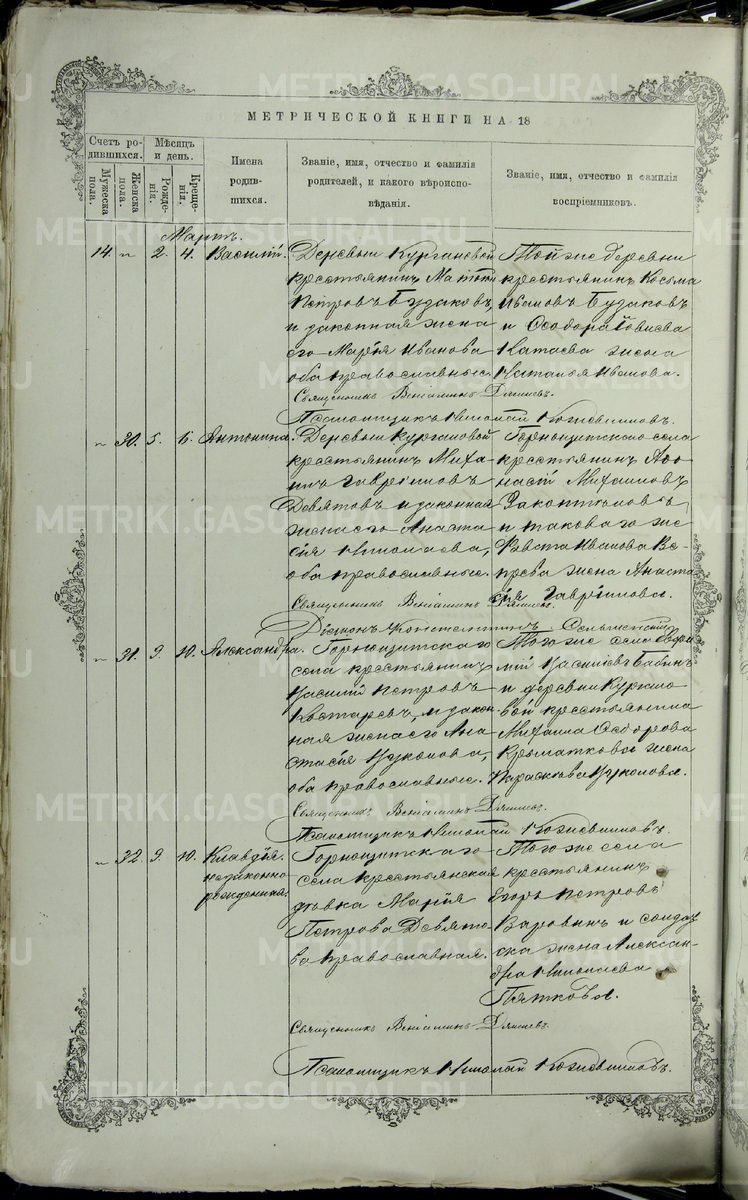 МЕТРИЧЕСКОЙ КНИГИ НА 18
Счетъ ро-
дившихся.
Мужеска
пола.
Женска
пола.
Мѣсяцъ
и день.
Рожде-
нія.
Креще-
нія.
Имена
родив-
шихся.
Званіе, имя, отчество и фамилія
родителей, и какого вѣроиспо-
вѣданія.
Званіе, имя, отчество и фамилія
воспріемниковъ.
Мартъ.
14. " 2. 4. Василій.
Деревни Кургановой
крестьянинъ
Петровъ Будаковъ,
и законная жена
его Марія Иванова
оба православные.
Той же деревни
крестьянинъ Косьма
Ивановъ Будаковъ
и Ѳеодора
Катаева жена
Наталья Иванова.
Священникъ Веніаминъ
Псаломщикъ Николай Кожевниковъ.
" 30. 5. 6. Антонина.
Деревни Кургановой
крестьянинъ Миха-
илъ Гавріиловъ
Девятовъ и законная
жена его Анаста-
сія Николаева,
оба православные.
Горнощитскаго села
крестьянинъ Аѳо-
насій Михаиловъ
и такового же
Иванова
жена Анаста
сія Гавріилова.
Священникъ Веніаминъ
Діаконъ Константинъ
" 31. 9. 10. Александра.
Горнощитскаго
села крестьянинъ
Василій Петровъ
Костаревъ, и закон
ная жена его Ана
стасія
оба православные.
Того же села
Василіевъ Бабинъ
и деревни Кургано
вой крестьянина
Михаила Ѳеодорова
жена
Параскева
Священникъ Веніаминъ
Псаломщикъ Николай Кожевниковъ.
" 32. 9. 10. Клавдія.
незаконно
рожденная.
Горнощитскаго
села крестьянская
дѣвка Марія
Петрова Девято
ва православная.
Того же села
крестьянинъ
Егоръ Петровъ
и солдат
ска жена Алексан
дра Николаева
Пяткова.
Священникъ Веніаминъ
Псаломщикъ Николай Кожевниковъ.
METRIKI.GASO-URAL.RU